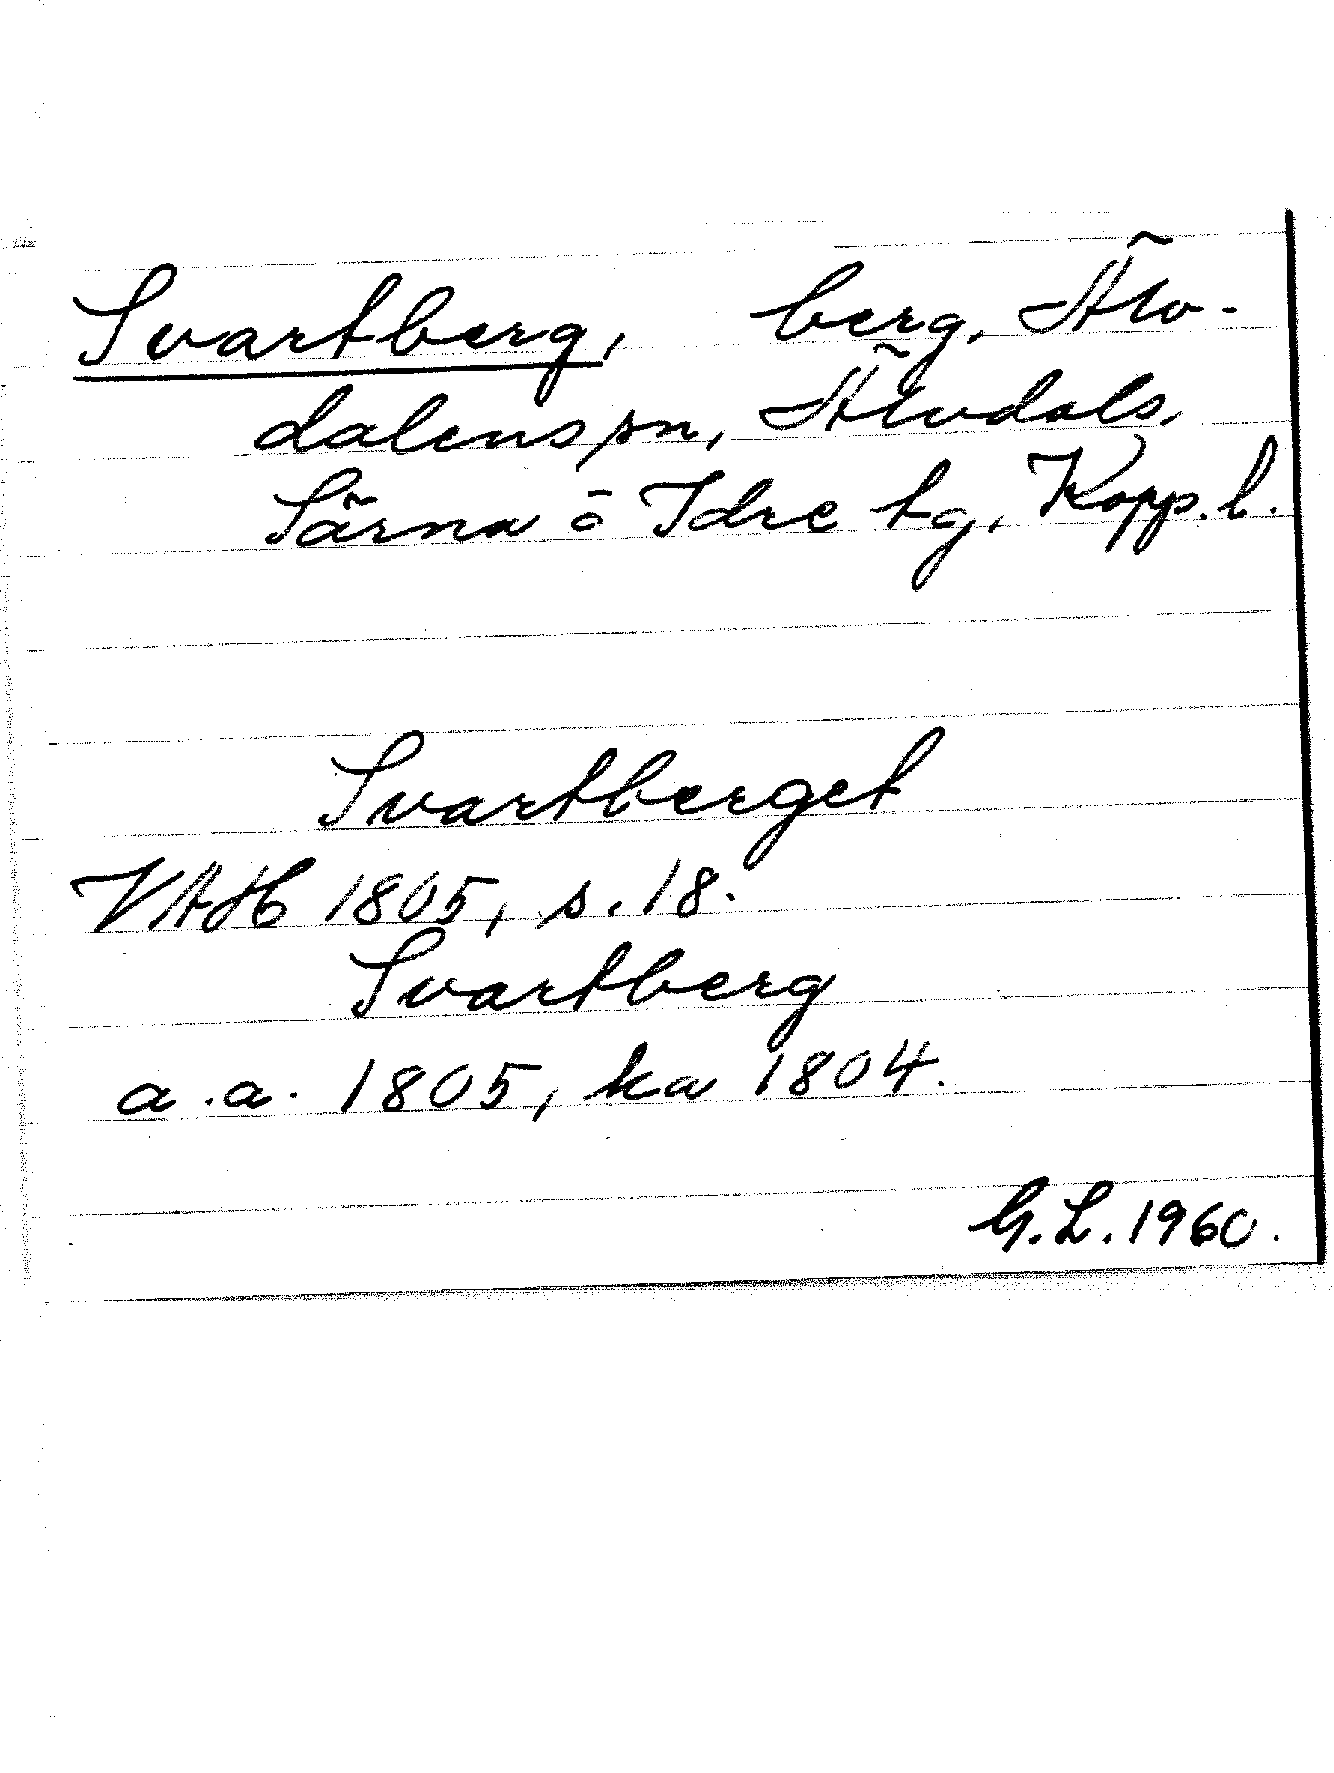 Svartberg, berg, Älv-
dalens sn, Älvdals,
Särna o Idre tg, Kopp. l.
Svartberget
VAH 1805, s. 18.
Svartberg
a.a. 1805, ka 1804.
G.L. 1960.